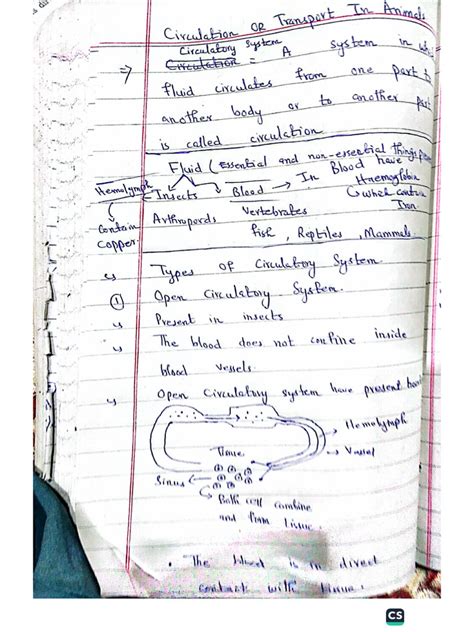 Circulation OR Transport In Animals
Circulatory System
⇒ Circulation = A system in
fluid circulates from one part to
another body or to another part
is called circulation
Fluid (Essential and non-essential things
Hemolymph Insects Blood → In Blood have
Haemoglobin
which contain
Iron
Contain
copper
Arthropords vertebrates
fish, Reptiles, Mammals
Types of Circulatory System
① Open Circulatory System.
Present in insects
The blood does not confine inside
blood vessels
Open Circulatory system have present
Hemolymph
Vessel
Tissue
Sinus
Both cell combine
and from tissue.
• The blood is in direct
contact with tissue.
CS